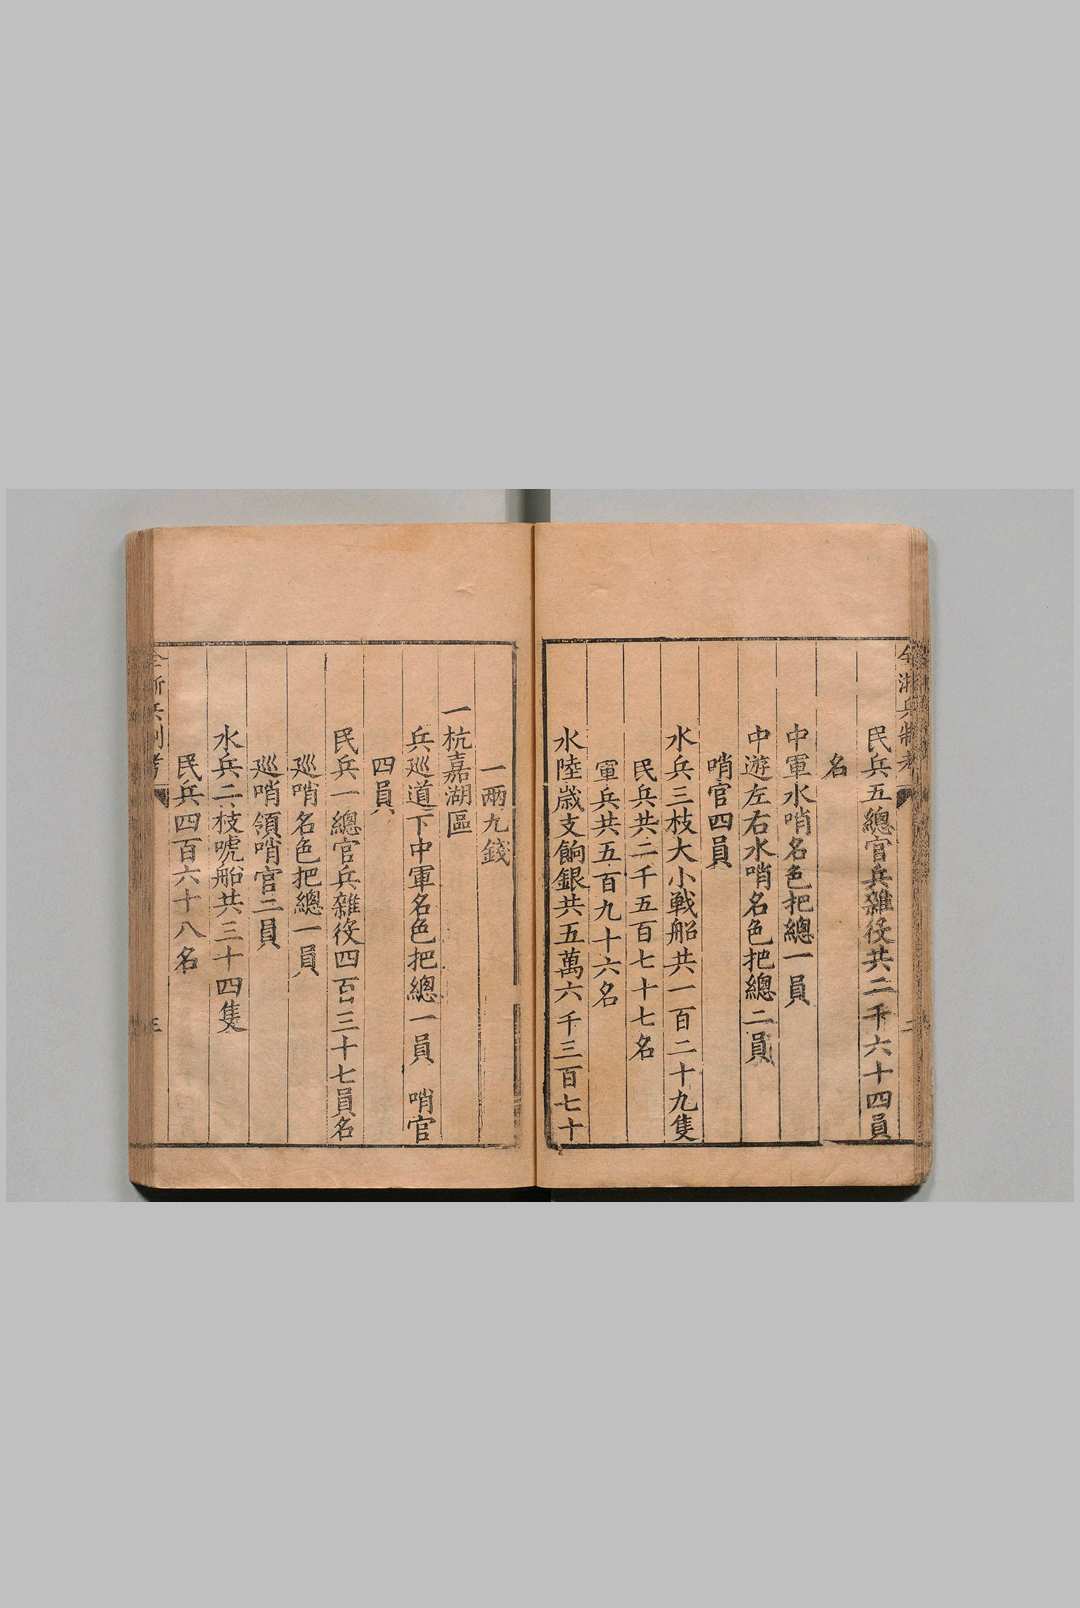 全浙兵制考
民兵五總官兵雜役共二千六十四員
名
中軍水哨名色把總一員
中遊左右水哨名色把總二員
哨官四員
水兵三枝大小戰船共一百二十九隻
民兵共二千五百七十七名
軍兵共五百九十六名
水陸歲支餉銀共五萬六千三百七十
一兩九錢
一杭嘉湖區
兵巡道下中軍名色把總一員　哨官
四員
民兵一總官兵雜役四百三十七員名
巡哨名色把總一員
巡哨領哨官二員
水兵二枝唬船共三十四隻
民兵四百六十八名
全浙兵制考
三